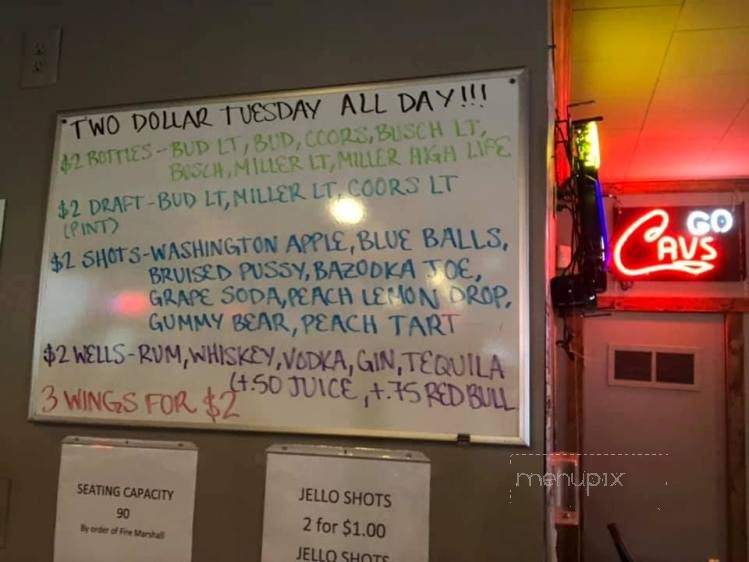 TWO DOLLAR TUESDAY ALL DAY!!!
$2 BOTTLES-BUD LT, BUD, COORS, BUSCH LT,
BUSCH, MILLER LT, MILLER HIGH LIFE
$2 DRAFT-BUD LT, MILLER LT, COORS LT
(PINT)
$2 SHOTS-WASHINGTON APPLE, BLUE BALLS,
BRUISED PUSSY, BAZOOKA JOE,
GRAPE SODA, PEACH LEMON DROP,
GUMMY BEAR, PEACH TART
$2 WELLS-RUM, WHISKEY, VODKA, GIN, TEQUILA
(+.50 JUICE, +.75 RED BULL
3 WINGS FOR $2
SEATING CAPACITY
90
By order of Fire Marshall
JELLO SHOTS
2 for $1.00
JELLO SHOTS
GO
CAVS
menupix